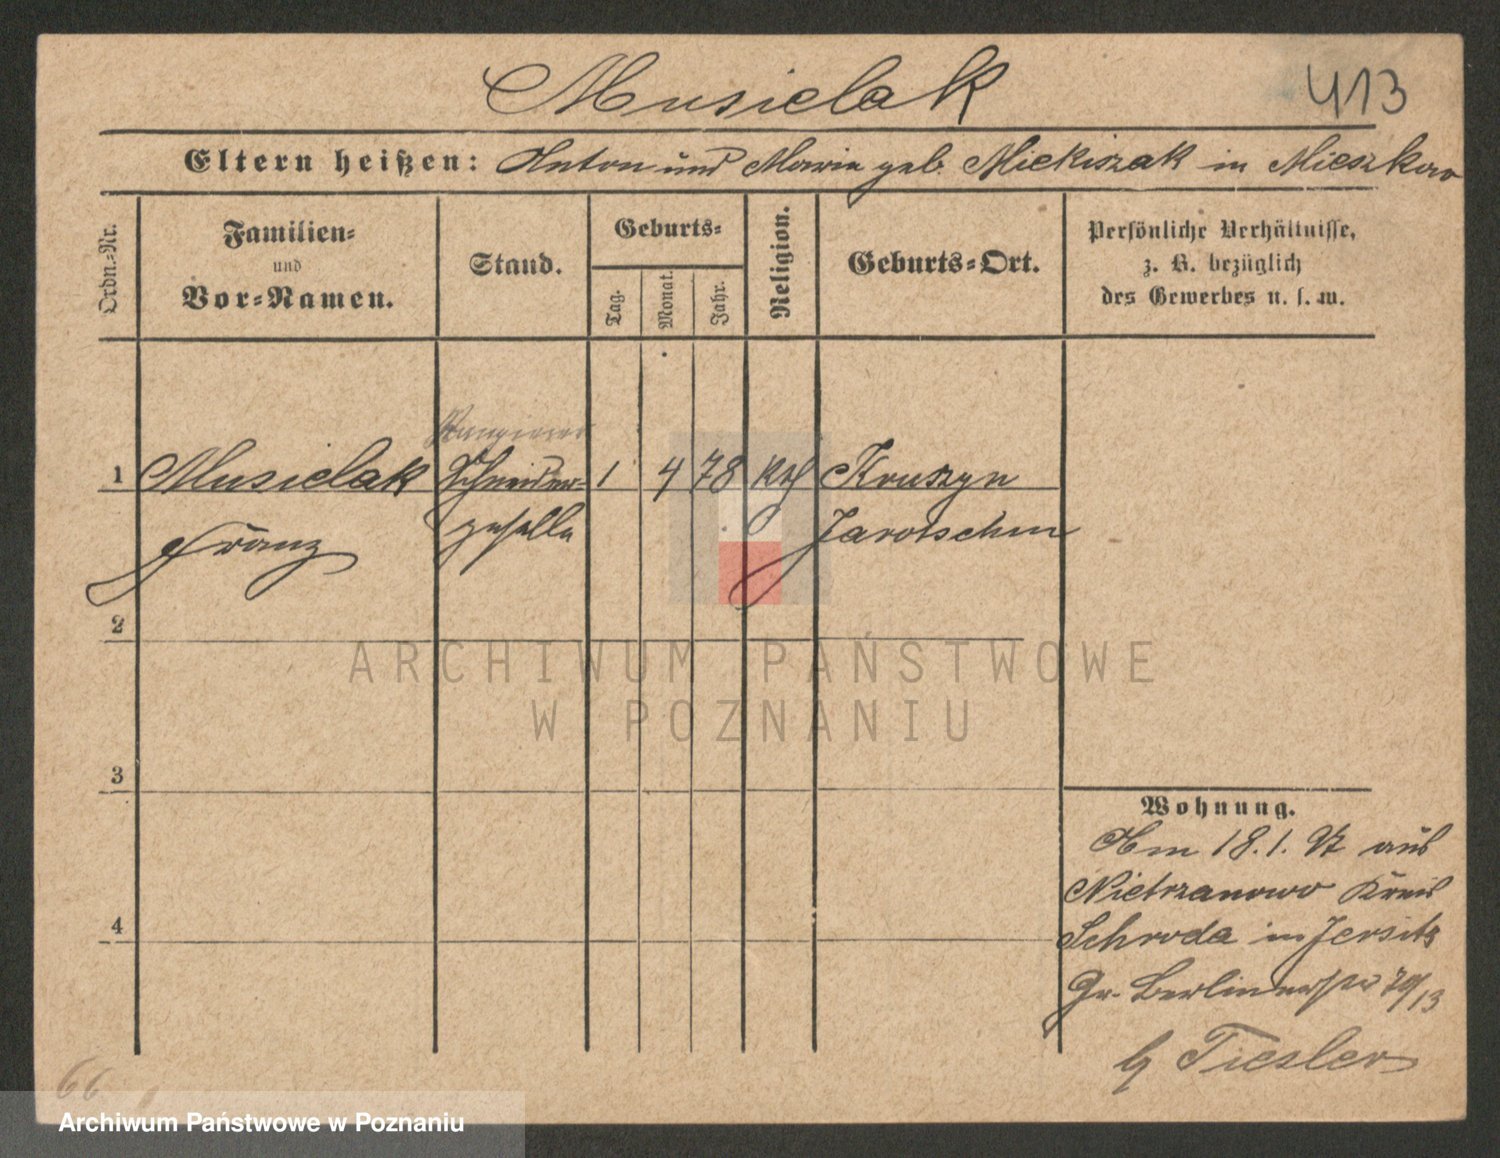 Musielak 413
Eltern heißen: Anton und Maria geb. Miekiszak in Mieszkow
Ordn.-Nr.
Familien-
und
Vor-Namen.
Stand.
Geburts-
Tag.
Monat.
Jahr.
Religion.
Geburts-Ort.
Persönliche Verhältnisse,
z. B. bezüglich
des Gewerbes u. s. w.
Rangierer
1 Musielak Schneider- 1 4 78 kth Kruszyn
Franz geselle Jarotschin
2
3
4
Wohnung.
Am 18.1. aus
Nietrzanowo Kreis
Schroda in Jersitz
Gr. Berlinerstr 79/13
b Tiesler
66
ARCHIWUM PAŃSTWOWE
W POZNANIU
Archiwum Państwowe w Poznaniu